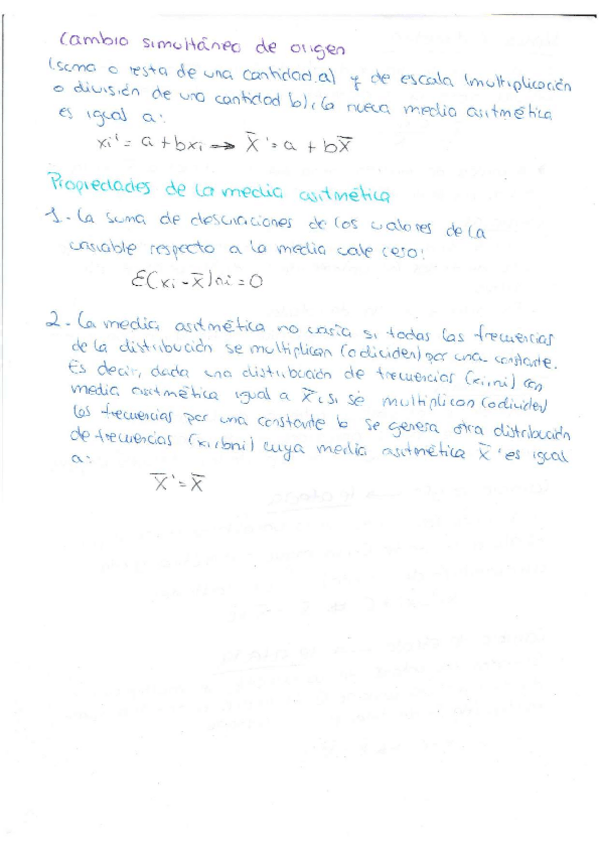 Cambio simultáneo de origen
(suma o resta de una cantidad a) y de escala (multiplicación
o división de una cantidad b), la nueva media aritmética
es igual a:
xi' = a + bxi → X̄' = a + bX̄
Propiedades de la media aritmética
1.- La suma de desviaciones de los valores de la
variable respecto a la media vale cero:
Ɛ(xi - x̄)ni = 0
2.- La media aritmética no varía si todas las frecuencias
de la distribución se multiplican (o dividen) por una constante.
Es decir, dada una distribución de frecuencias (xi, ni) con
media aritmética igual a x̄, si se multiplican (o dividen)
las frecuencias por una constante b se genera otra distribución
de frecuencias (xi, bni) cuya media aritmética x̄' es igual
a:
X̄' = X̄